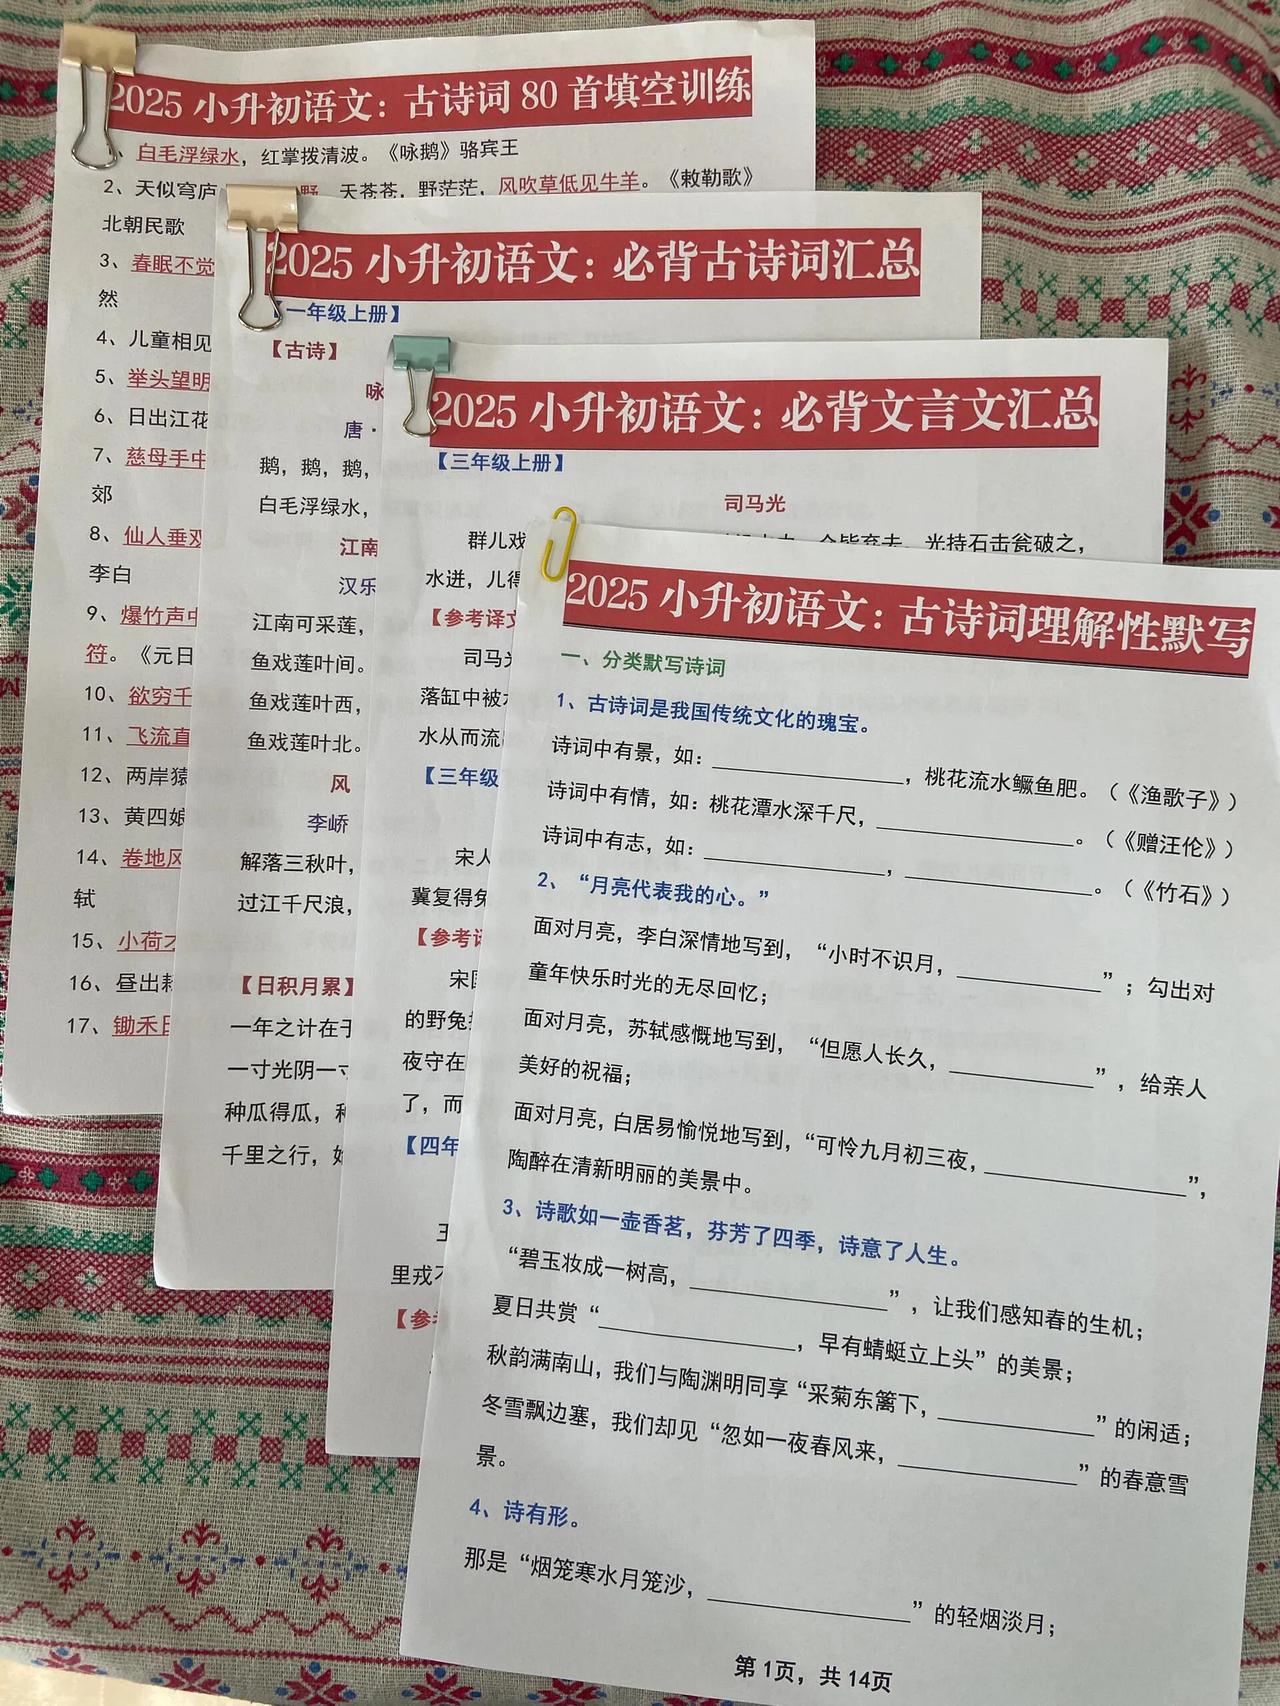 2025 小升初语文：古诗词 80 首填空训练
白毛浮绿水，红掌拨清波。《咏鹅》骆宾王
2、天似穹庐
野。天苍苍，野茫茫，风吹草低见牛羊。《敕勒歌》
北朝民歌
3、春眠不觉
然
4、儿童相见
5、举头望明
6、日出江花
7、慈母手中
郊
8、仙人垂
李白
9、爆竹声中
符。《元日
10、欲穷千
11、飞流直
12、两岸猿
13、黄四娘
14、卷地风
轼
15、小荷才
16、昼出耘
17、锄禾日
2025 小升初语文：必背古诗词汇总
【一年级上册】
【古诗】
咏
唐·
鹅，鹅，鹅，
白毛浮绿水，
江南
汉乐
江南可采莲，
鱼戏莲叶间。
鱼戏莲叶西，
鱼戏莲叶北。
风
李峤
解落三秋叶，
过江千尺浪，
【日积月累】
一年之计在于
一寸光阴一寸
种瓜得瓜，种
千里之行，始
2025 小升初语文：必背文言文汇总
【三年级上册】
司马光
群儿戏
众皆弃去，光持石击瓮破之，
水迸，儿得
【参考译文
司马光
落缸中被水
水从而流
【三年级
宋人
冀复得兔
【参考译
宋国
的野兔
夜守在
了，而
【四年
王
里戎不
【参考
2025 小升初语文：古诗词理解性默写
一、分类默写诗词
1、古诗词是我国传统文化的瑰宝。
诗词中有景，如：____________，桃花流水鳜鱼肥。（《渔歌子》）
诗词中有情，如：桃花潭水深千尺，____________。（《赠汪伦》）
诗词中有志，如：____________，____________。（《竹石》）
2、“月亮代表我的心。”
面对月亮，李白深情地写到，“小时不识月，____________”；勾出对
童年快乐时光的无尽回忆；
面对月亮，苏轼感慨地写到，“但愿人长久，____________”，给亲人
美好的祝福；
面对月亮，白居易愉悦地写到，“可怜九月初三夜，____________”，
陶醉在清新明丽的美景中。
3、诗歌如一壶香茗，芬芳了四季，诗意了人生。
“碧玉妆成一树高，____________”，让我们感知春的生机；
夏日共赏“____________，早有蜻蜓立上头”的美景；
秋韵满南山，我们与陶渊明同享“采菊东篱下，____________”的闲适；
冬雪飘边塞，我们却见“忽如一夜春风来，____________”的春意雪
景。
4、诗有形。
那是“烟笼寒水月笼沙，____________”的轻烟淡月；
第 1页，共 14页